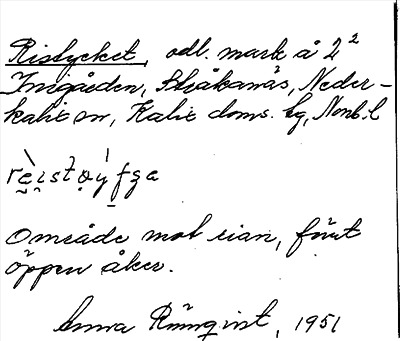 Ristycket, odl. mark å 2²
Inigården, Stråkanäs, Neder-
kalix sn, Kalix doms. tg, Nonb. l
Område mot åian, förut
öppen åker.
Anna Rönnqvist, 1951